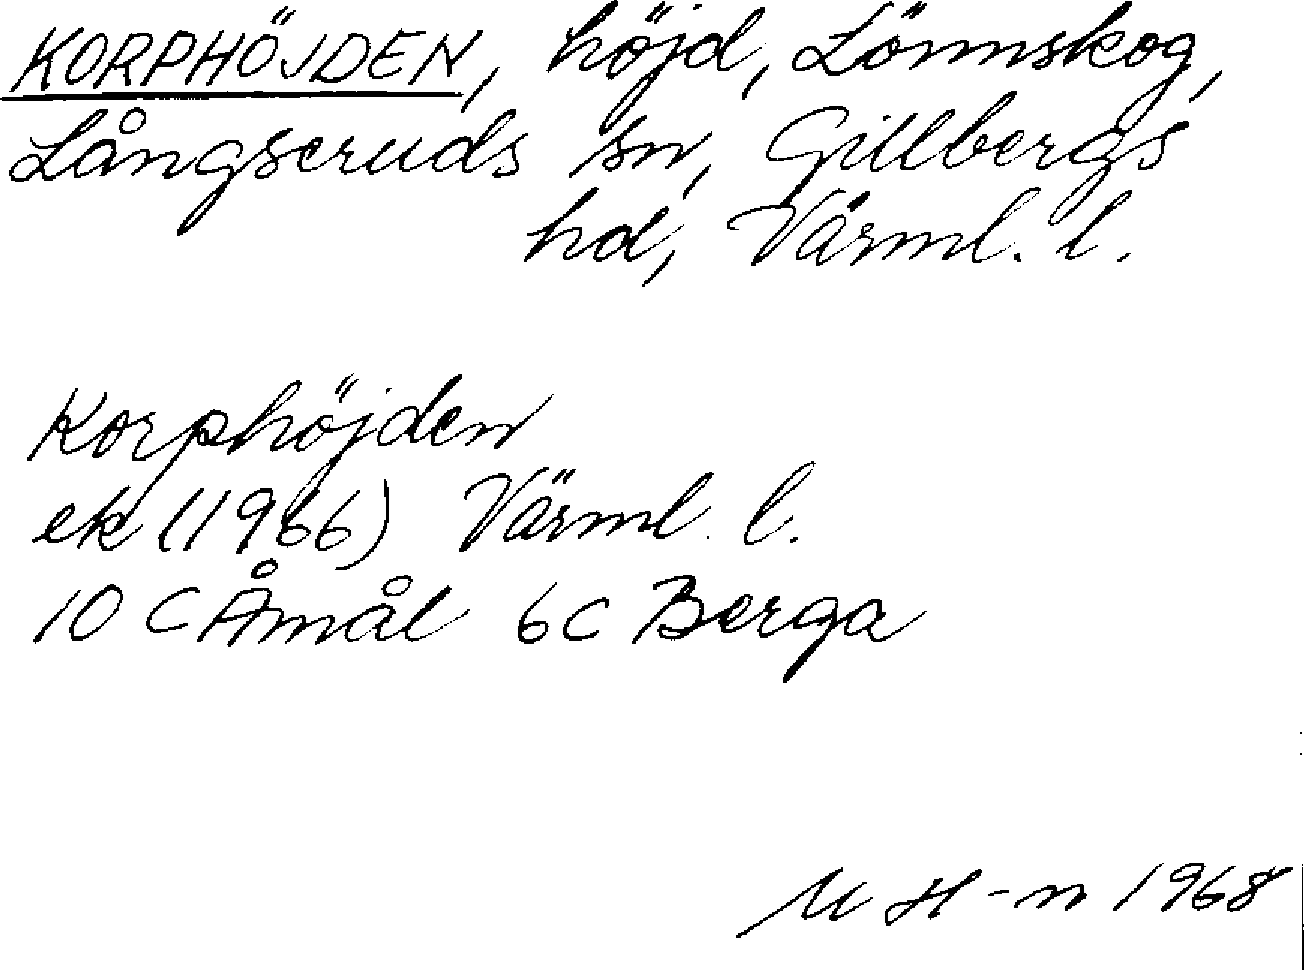 KORPHÖJDEN, höjd, Lönnskog,
Långseruds sn, Gillbergs
hd, Värml. l.
Korphöjden
ek (1966) Värml. l.
10 C Åmål 6c Berga
M H-n 1968